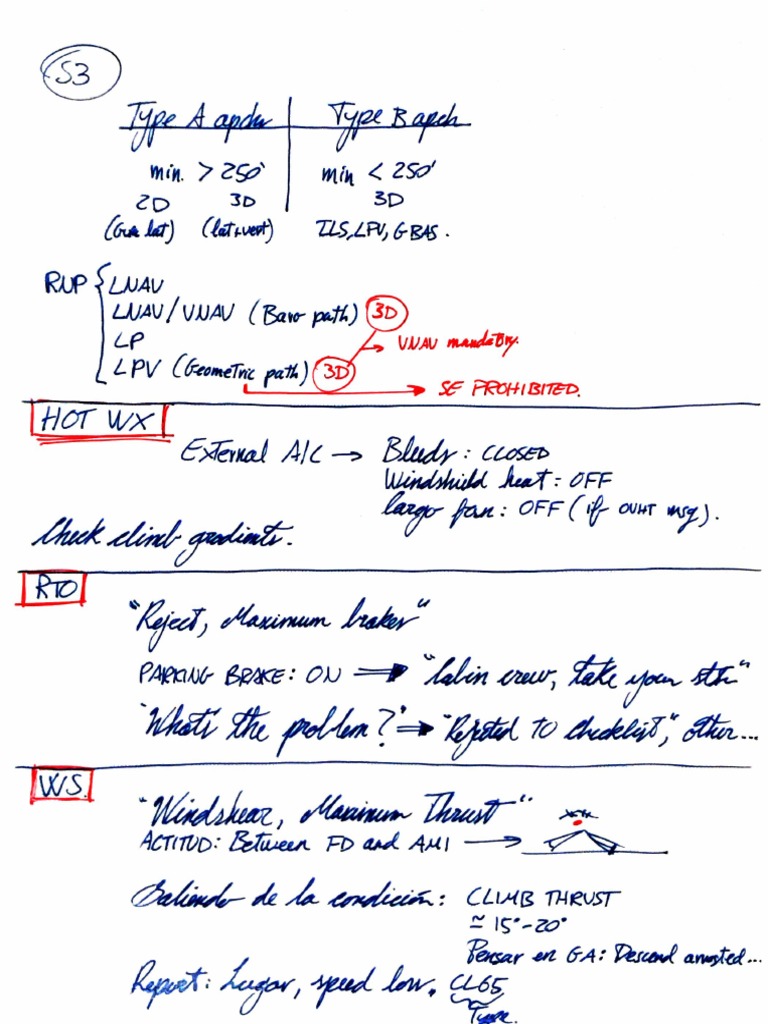 S3
Type A apch Type B apch
min. > 250' min < 250'
2D 3D 3D
(lat) (lat+vert) ILS, LPV, GBAS.
RNP { LNAV
LNAV/VNAV (Baro path) 3D
→ VNAV mandatory.
LP
LPV (Geometric path) 3D
→ SE PROHIBITED.
HOT WX
External A/C → Bleeds: CLOSED
Windshield heat: OFF
Cargo fan: OFF (if OVHT msg).
Check climb gradients.
RTO
"Reject, Maximum brakes"
PARKING BRAKE: ON ⇒ "Cabin crew, take your stn"
"What's the problem?" ⇒ "Rejected TO Checklist", other...
WS.
"Windshear, Maximum Thrust"
ACTITUD: Between FD and AMI →
Saliendo de la condición: CLIMB THRUST
≃ 15°-20°
Pensar en GA: Descend arrested...
Report: Lugar, speed low, CL65
Type.